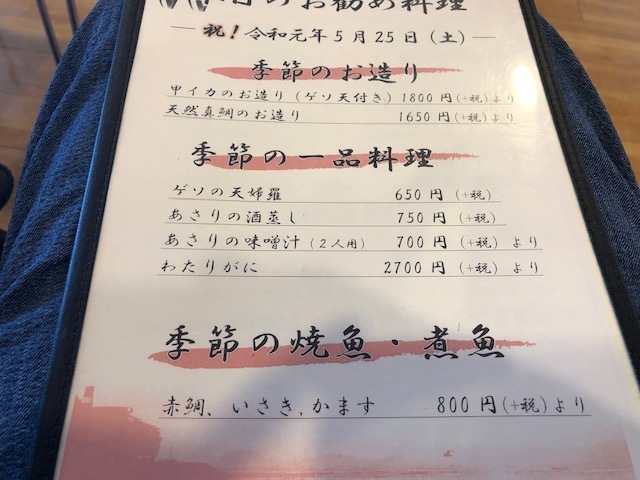 のお勧め料理
祝！令和元年5月25日（土）
季節のお造り
甲イカのお造り（ゲソ天付き）1800円（+税）より
天然真鯛のお造り 1650円（+税）より
季節の一品料理
ゲソの天婦羅 650円（+税）
あさりの酒蒸し 750円（+税）
あさりの味噌汁（2人用） 700円（+税）より
わたりがに 2700円（+税）より
季節の焼魚・煮魚
赤鯛、いさき、かます 800円（+税）より